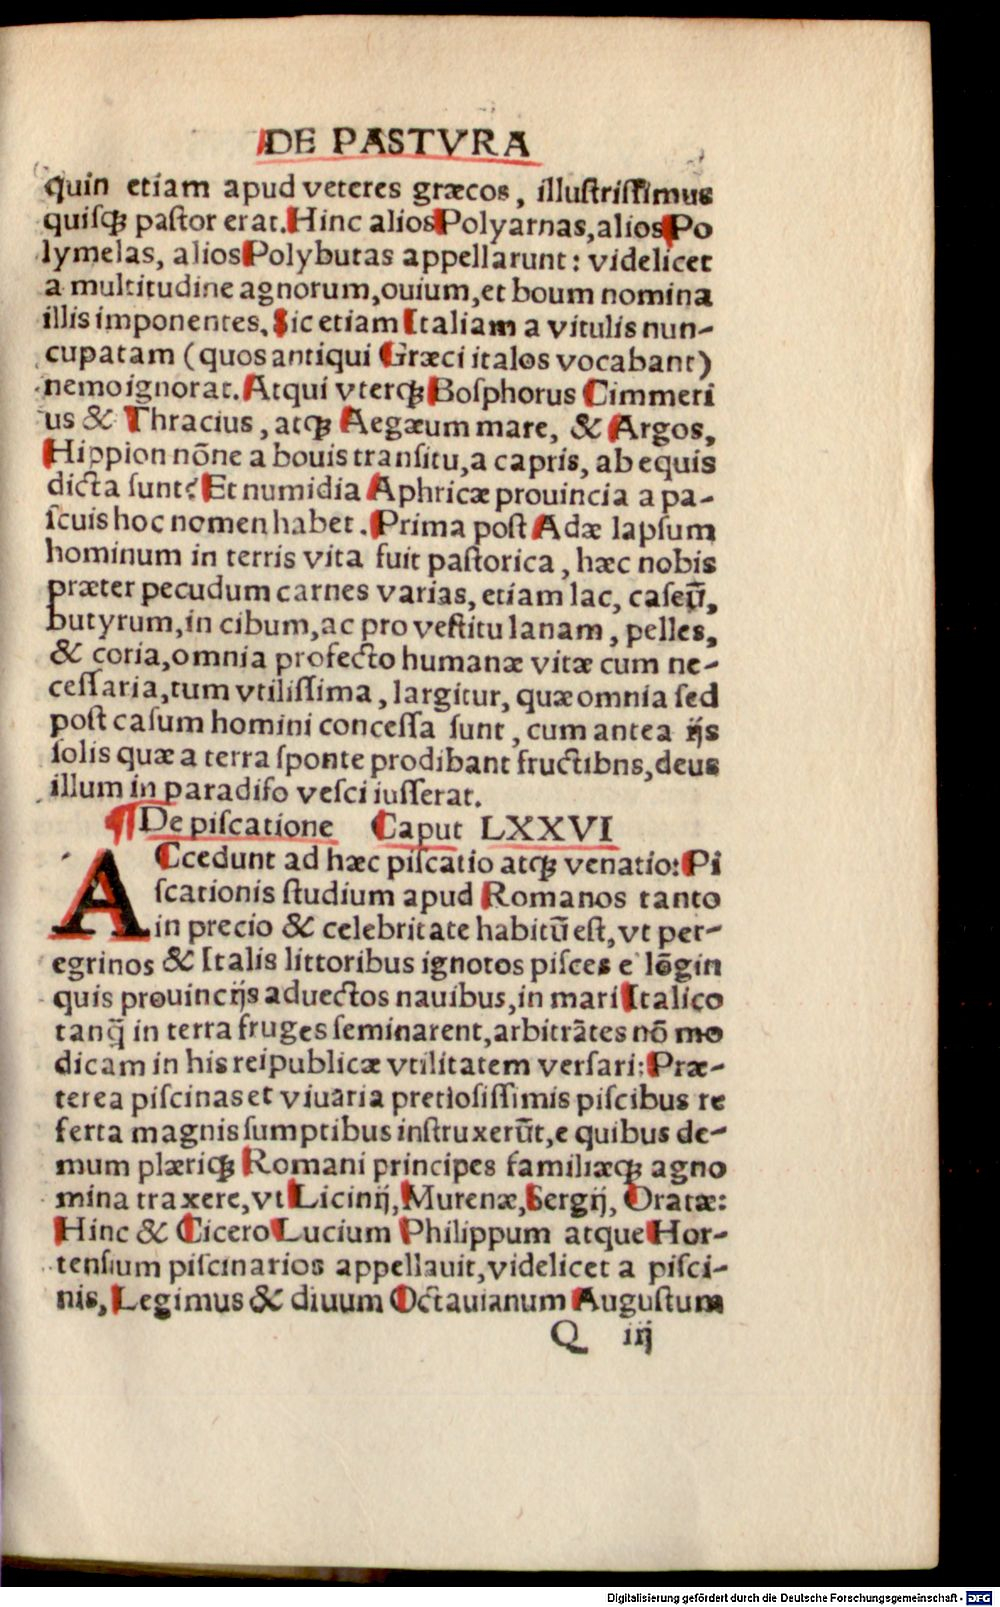 DE PASTVRA
quin etiam apud veteres græcos, illustrissimus
quisqꝫ pastor erat. Hinc alios Polyarnas, alios Po
lymelas, alios Polybutas appellarunt: videlicet
a multitudine agnorum, ouium, et boum nomina
illis imponentes. Sic etiam Italiam a vitulis nun-
cupatam (quos antiqui Græci italos vocabant)
nemo ignorat. Atqui vterqꝫ Bosphorus Cimmeri
us & Thracius, atqꝫ Aegæum mare, & Argos,
Hippion nõne a bouis transitu, a capris, ab equis
dicta sunt? Et numidia Aphricæ prouincia a pa-
scuis hoc nomen habet. Prima post Adæ lapsum
hominum in terris vita fuit pastorica, hæc nobis
præter pecudum carnes varias, etiam lac, caseũ,
butyrum, in cibum, ac pro vestitu lanam, pelles,
& coria, omnia profecto humanæ vitæ cum ne-
cessaria, tum vtilissima, largitur, quæ omnia sed
post casum homini concessa sunt, cum antea ijs
solis quæ a terra sponte prodibant fructibns, deus
illum in paradiso vesci iusserat.
¶ De piscatione Caput LXXVI
ACcedunt ad hæc piscatio atqꝫ venatio: Pi
scationis studium apud Romanos tanto
in precio & celebritate habitũ est, vt per-
egrinos & Italis littoribus ignotos pisces e lõgin
quis prouincijs aduectos nauibus, in mari Italico
tanq̃ in terra fruges seminarent, arbitrãtes nõ mo
dicam in his reipublicæ vtilitatem versari: Præ-
terea piscinas et viuaria pretiosissimis piscibus re
ferta magnis sumptibus instruxerũt, e quibus de-
mum plæriqꝫ Romani principes familiæqꝫ agno
mina traxere, vt Licinij, Murenæ, Sergij, Oratæ:
Hinc & Cicero Lucium Philippum atque Hor-
tensium piscinarios appellauit, videlicet a pisci-
nis, Legimus & diuum Octauianum Augustum
Q iij
Digitalisierung gefördert durch die Deutsche Forschungsgemeinschaft - DFG